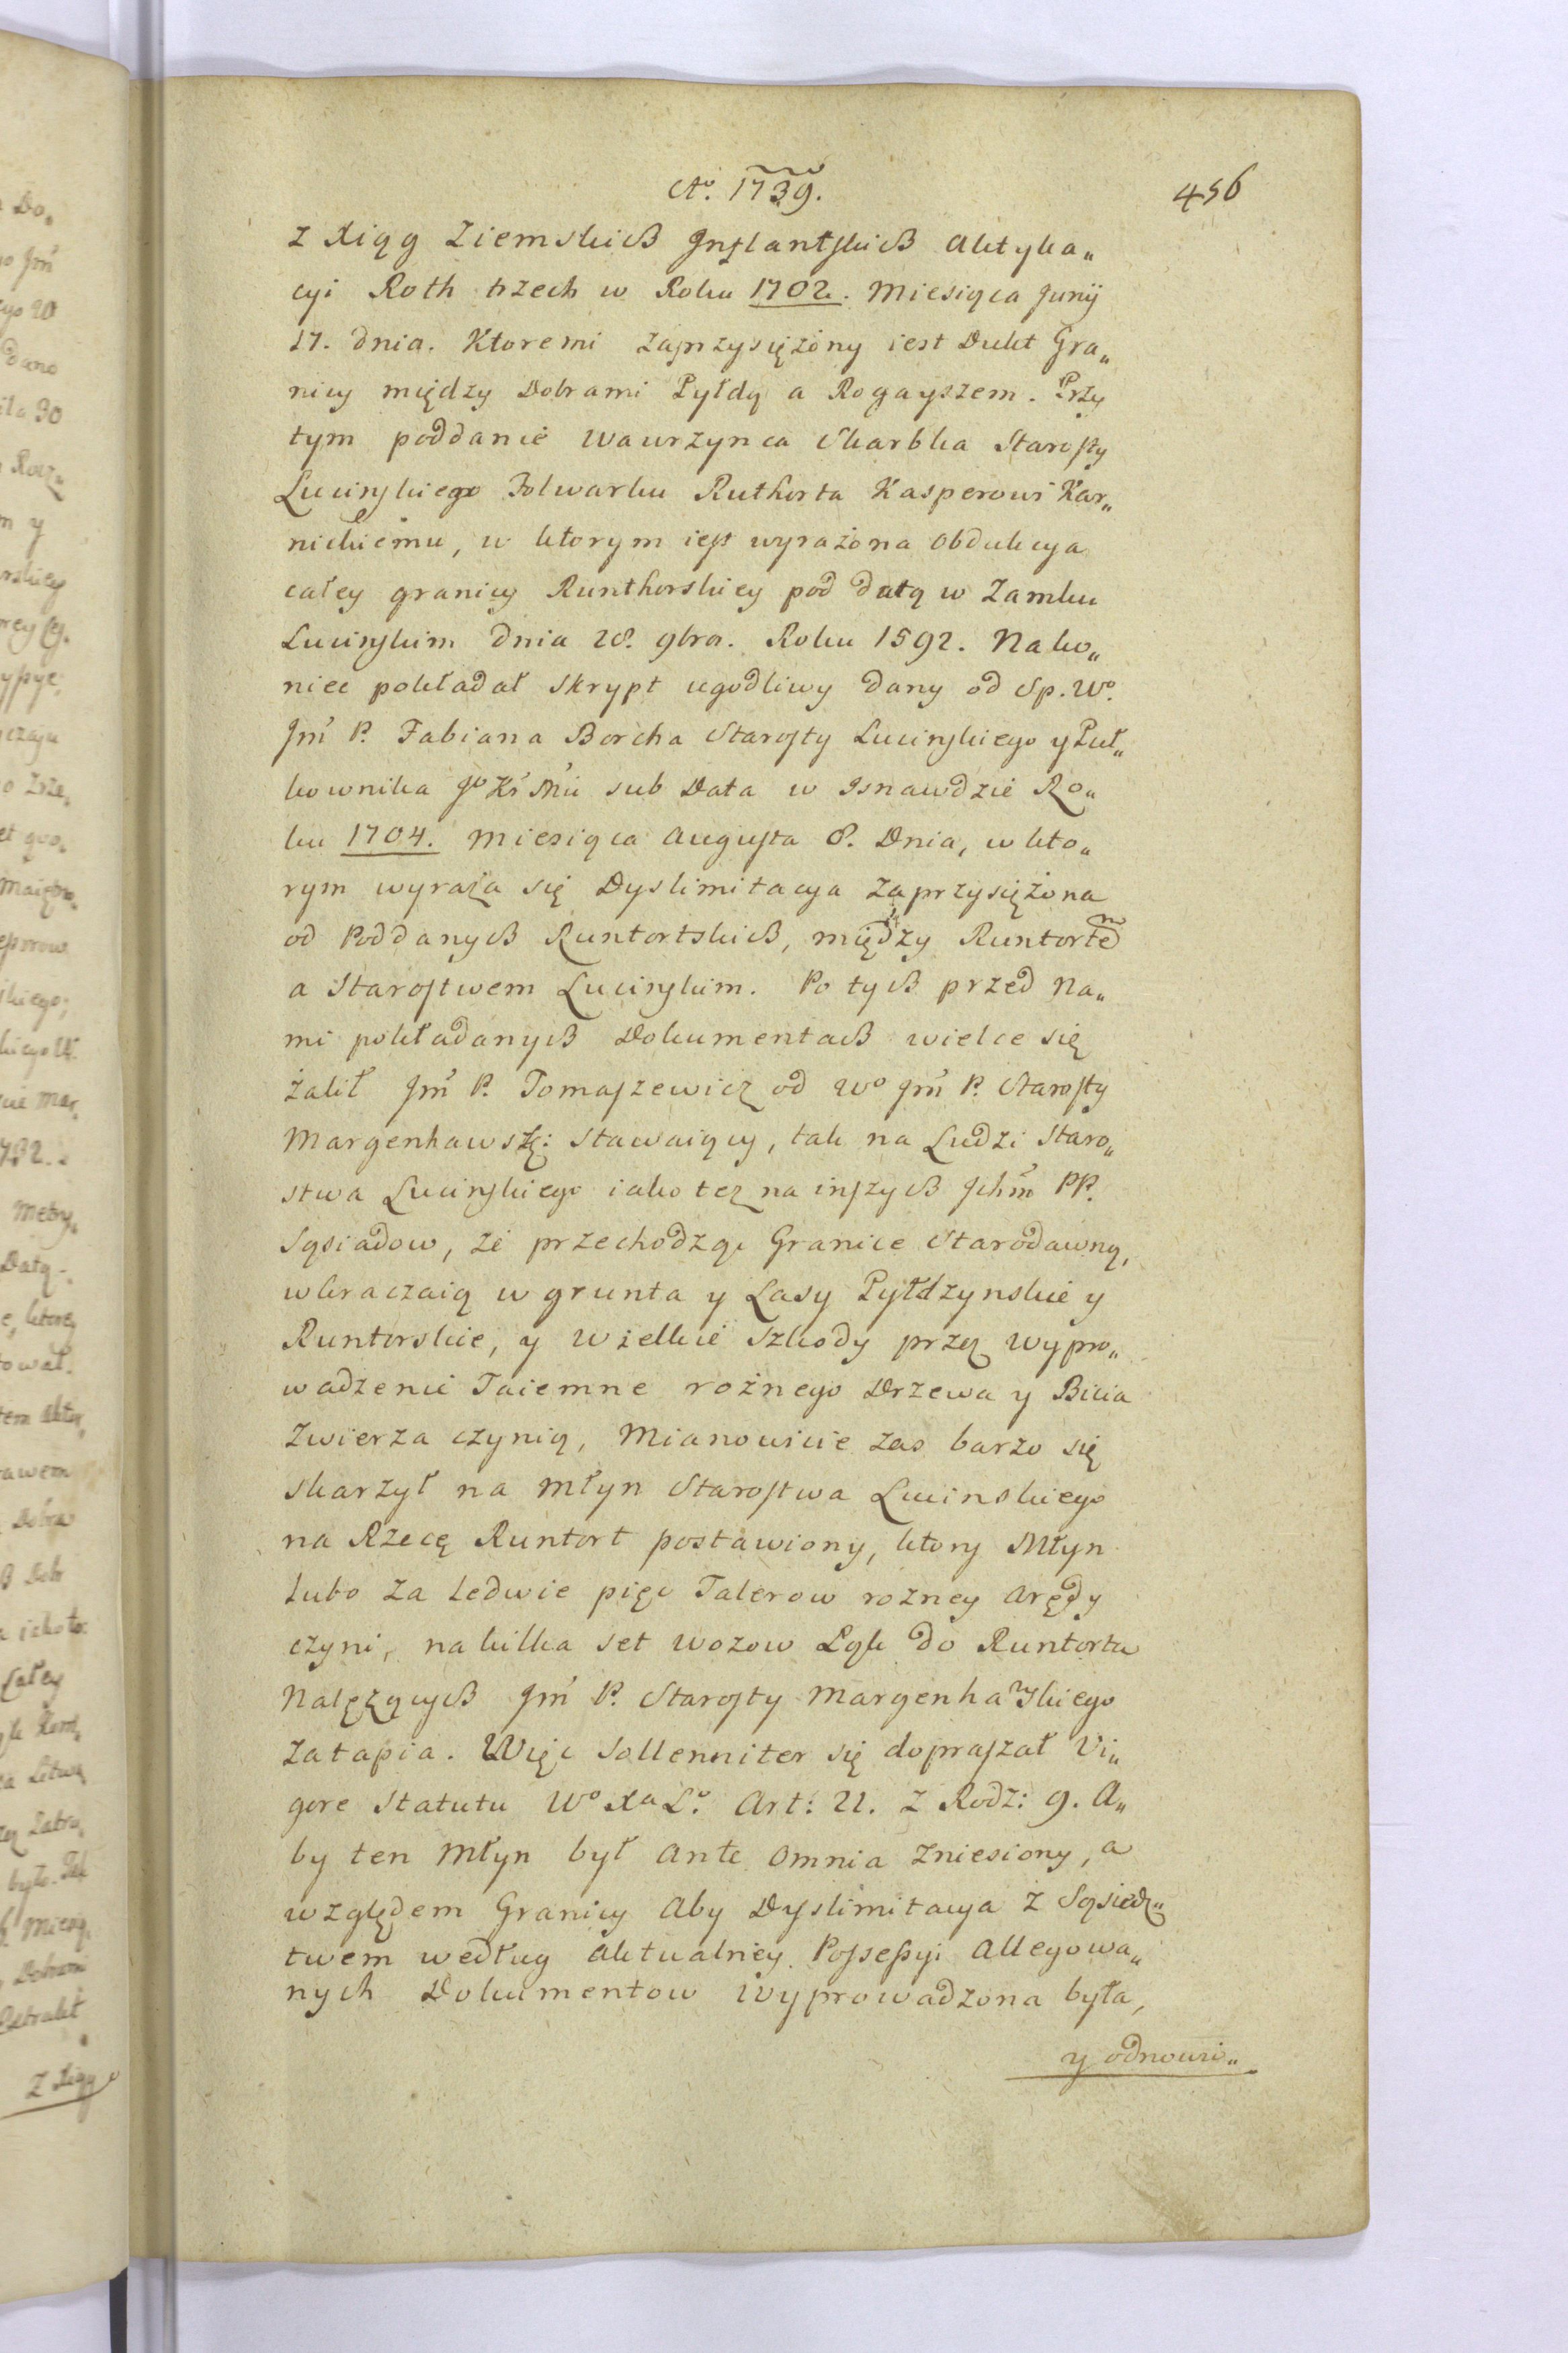 Ao. 1739.
456
z Xiąg Ziemskich Inflantskich Aktyka„
cyi Roth trzech w Roku 1702. Miesiąca Junÿ
17. dnia. Ktoremi zaprzysiężony iest Dukt Gra„
nicy między Dobrami Pyłdą a Rogayszem. Przy
tym poddanie Wawrzynca Skarbka Starosty
Lucinskiego Folwarku Ruthorta Kasperowi Kar„
nickiemu, w ktorym iest wyrażona Obdukcya
całey granicy Runthorskiey pod datą w Zamku
Lucinskim dnia 28. 9bra. Roku 1592. Nako„
niec pokładał skrypt ugodliwy dany od Sp. Wo.
Jm̃ P. Fabiana Borcha Starosty Lucinskiego y Puł„
kownika Jo Kr Mci sub Data w Isnawdzie Ro„
ku 1704. Miesiąca Augusta 8. Dnia, w kto„
rym wyraża się Dyslimitacya zaprzysiężona
od Poddanych Runtortskich, między Runtortẽ
a Starostwem Lucinskim. Po tych przed Na„
mi pokładanych Dokumentach wielce się
żalił Jm̃ P. Tomaszewicz od Wo Jm̃ P. Starosty
Margenhawsk: stawaiący, tak na Ludzi Staro„
stwa Lucinskiego iako tez na inszych Ichm̃ PP.
Sąsiadow, ze przechodząc Granice Starodawną,
wkraczaią w grunta y Lasy Pyłdzynskie y
Runtorskie, y wielkie Szkody przez wypro„
wadzenie Taiemne rożnego Drzewa y Bicia
Zwierza czynią, Mianowicie zas barzo się
skarzył na Młyn Starostwa Lucinskiego
na Rzecę Runtort postawiony, ktory Młyn
lubo za ledwie pięc Talerow rozney Arędy
czyni, na kilka set wozow Ląk do Runtortu
Należących Jm̃ P. Starosty Margenhawskiego
zatapia. Więc Sollenniter się dopraszał Vi„
gore Statutu Wo Xa Lo. Art: 21. z Rodz: 9. A„
by ten Młyn był Ante Omnia zniesiony, a
względem Granicy Aby Dyslimitacya z Sąsiedz„
twem według Aktualney Possessyi Allegowa„
nych Dokumentow wyprowadzona była,
y odnowi„